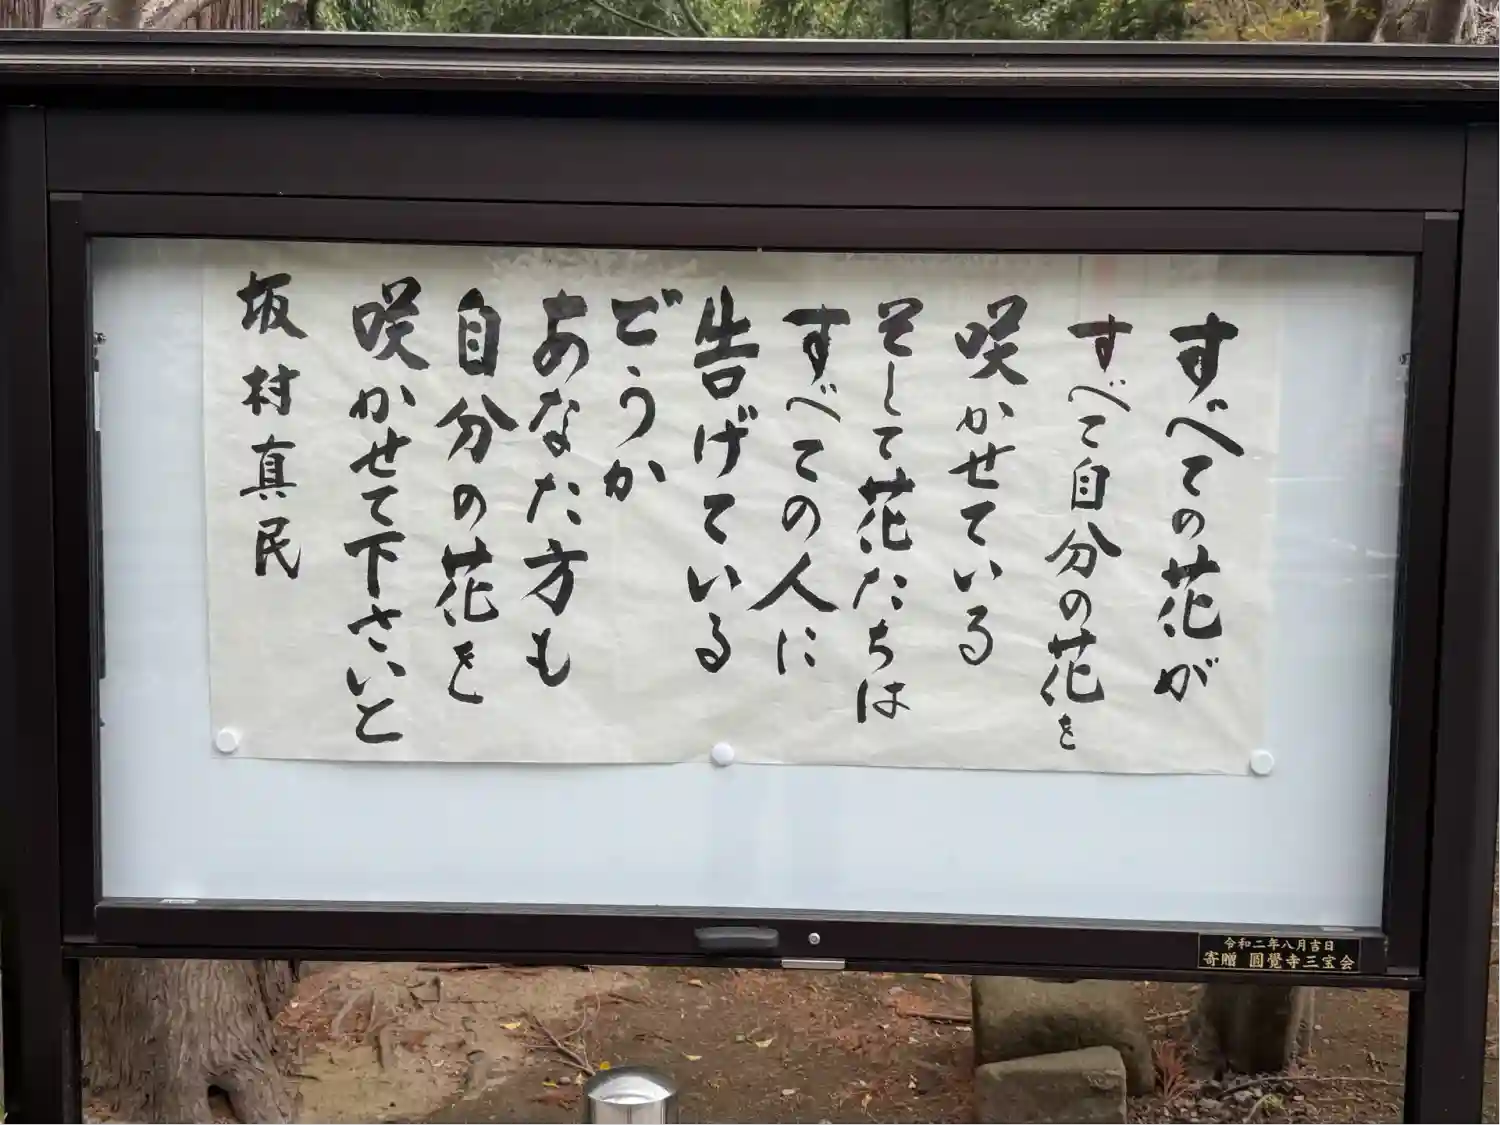 すべての花が
すべて自分の花を
咲かせている
そして花たちは
すべての人に
告げている
どうか
あなた方も
自分の花を
咲かせて下さいと
坂村真民
令和二年八月吉日
寄贈 圓覺寺三宝会